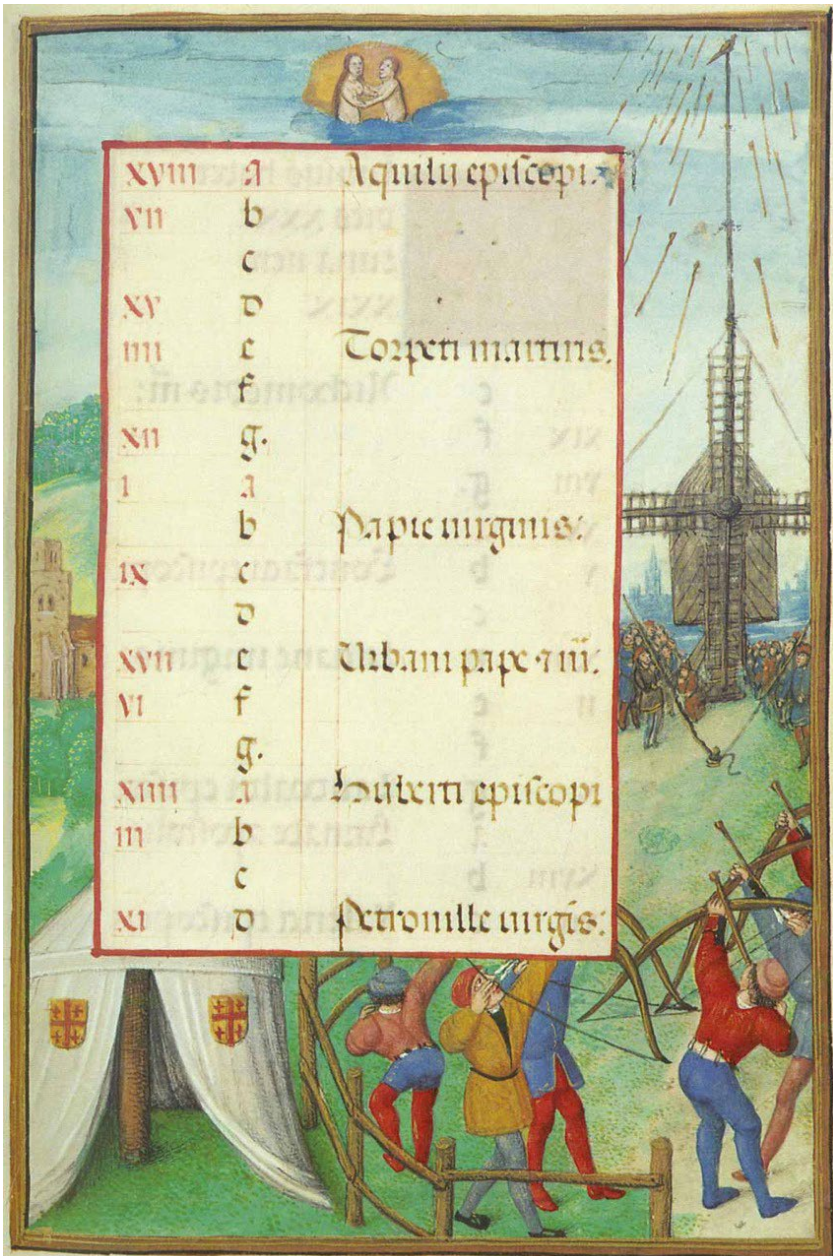 XVIII a Aquilii episcopi.
VII b
c
XV d
IIII e Torpeti martiris.
f
XII g.
I a
b Papie virginis:
IX c
d
XVII e Urbani pape · m̄.
VI f
g.
XIIII a Huberti episcopi
III b
c
XI d Petronille virgīs: